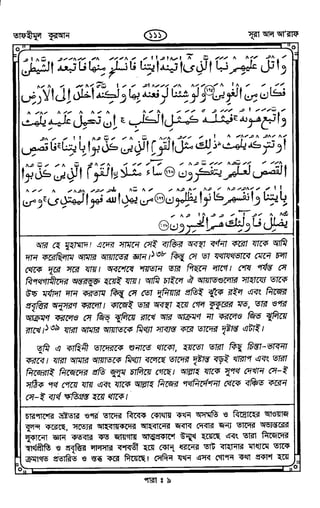 তাফহীমুল কুরআন
১১১
সূরা আল আ'রাফ
وَاتْلُ عَلَيْهِمْ نَبَاَ الَّذِيْٓ اٰتَيْنٰهُ اٰيٰتِنَا فَانْسَلَخَ مِنْهَا فَاَتْبَعَهُ الشَّيْطٰنُ
فَكَانَ مِنَ الْغٰوِيْنَ وَلَوْ شِئْنَا لَرَفَعْنٰهُ بِهَا وَلٰكِنَّهٗٓ اَخْلَدَ اِلَى الْاَرْضِ
وَاتَّبَعَ هَوٰىهُ فَمَثَلُهٗ كَمَثَلِ الْكَلْبِ اِنْ تَحْمِلْ عَلَيْهِ يَلْهَثْ
اَوْ تَتْرُكْهُ يَلْهَثْ ذٰلِكَ مَثَلُ الْقَوْمِ الَّذِيْنَ كَذَّبُوْا بِاٰيٰتِنَا فَاقْصُصِ
الْقَصَصَ لَعَلَّهُمْ يَتَفَكَّرُوْنَ سَآءَ مَثَلًا الْقَوْمُ الَّذِيْنَ كَذَّبُوْا
بِاٰيٰتِنَا وَاَنْفُسَهُمْ كَانُوْا يَظْلِمُوْنَ مَنْ يَّهْدِ اللّٰهُ فَهُوَ الْمُهْتَدِيْ وَمَنْ
يُّضْلِلْ فَاُولٰٓئِكَ هُمُ الْخٰسِرُوْنَ
আর হে মুহাম্মাদ! এদের সামনে সেই ব্যক্তির অবস্থা বর্ণনা করো যাকে আমি
দান করেছিলাম আমার আয়াতের জ্ঞান। কিন্তু সে তা যথাযথভাবে মেনে চলা
থেকে দূরে সরে যায়। অবশেষে শয়তান তার পিছনে লাগে। শেষ পর্যন্ত সে
বিপথগামীদের অন্তরভুক্ত হয়েই যায়। আমি চাইলে ঐ আয়াতগুলোর সাহায্যে তাকে
উচ্চ মর্যাদা দান করতাম কিন্তু সে তো দুনিয়ার প্রতিই ঝুঁকে রইল এবং নিজের
প্রবৃত্তির অনুসরণ করলো। কাজেই তার অবস্থা হয়ে গেল কুকুরের মত, তার ওপর
আক্রমণ করলেও সে জিভ ঝুলিয়ে রাখে আর আক্রমণ না করলেও জিভ ঝুলিয়ে
রাখে। যারা আমার আয়াতকে মিথ্যা সাব্যস্ত করে তাদের দৃষ্টান্ত এটাই।
তুমি এ কাহিনী তাদেরকে শুনাতে থাকো, হয়তো তারা কিছু চিন্তা-ভাবনা
করবে। যারা আমার আয়াতকে মিথ্যা বলেছে তাদের দৃষ্টান্ত বড়ই খারাপ এবং তারা
নিজেরাই নিজেদের প্রতি জুলুম চালিয়ে গেছে। আল্লাহ যাকে সুপথ দেখান সে-ই
সঠিক পথ পেয়ে যায় এবং যাকে আল্লাহ নিজের পথনির্দেশনা থেকে বঞ্চিত করেন
সে-ই ব্যর্থ ক্ষতিগ্রস্ত হয়ে থাকে।
স্রষ্টার ওপর তাদের বিবেক কোথায় কখন অসম্মতি ও বিদ্রোহের আওয়াজ
বুলন্দ করেছে, সত্যের আহবায়কদের আহবানের জবাব দেবার জন্য তাদের অভ্যন্তরের
লুকানো জ্ঞান কতবার কত জায়গায় আত্মপ্রকাশে উন্মুখ হয়েছে এবং তারা নিজেদের
স্বার্থপ্রীতি ও প্রবৃত্তির লালসার বশবর্তী হয়ে কোন্ ধরনের তাকে
ক্রমাগত প্রতারিত ও স্তব্ধ করে দিয়েছে। সেদিন যখন এসব গোপন কথা প্রকাশ হয়ে
পারা : ৯